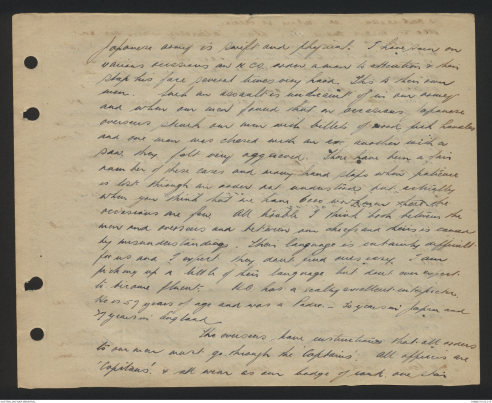 Japanese army is swift and physical. I have seen on
various occasions an N.C.O. order a man to attention & then
slap his face several times very hard. This to their own
men. Such an assault is unheard of in our army
and when our men found that on occasions Japanese
overseers struck our men with billets of wood, pick handles
and one man was chased with an axe another with a
saw, they felt very aggrieved. There have been a fair
number of these cases and many hand slaps when patience
is lost through an order not understood but actually
when you think that we have been
occasions are few. All trouble I think both between the
men and overseers and between our chiefs and theirs is caused
by misunderstandings. Their language is entirely difficult
for us and I expect they don't find ours easy. I am
picking up a little of their language but don't ever expect
to become fluent. H.Q. has a really excellent interpreter,
he is 57 years of age and was a Padre - 20 years in Japan and
7 years in England
The overseers have instructions that all orders
to our men must go through the 'Captains'. All officers are
'Capitans' & all wear as our badge of rank, one star